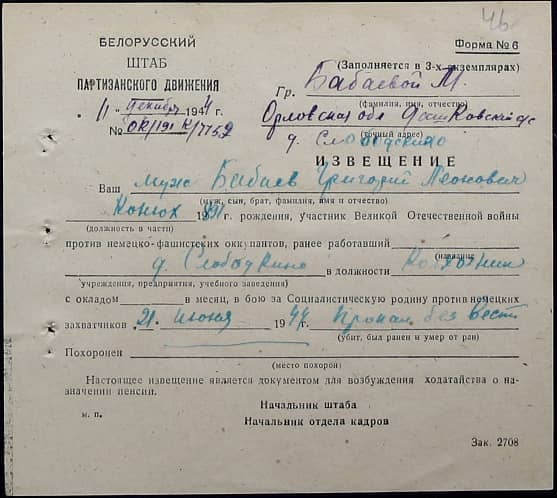 46
БЕЛОРУССКИЙ
ШТАБ
ПАРТИЗАНСКОГО ДВИЖЕНИЯ
Форма № 6
(Заполняется в 3-х экземплярах)
Гр. Бабаевой М.
(фамилия, имя, отчество)
"11" декабря 1944 г.
Орловская обл
(точный адрес)
№ 
д. Слободкино
ИЗВЕЩЕНИЕ
Ваш муж Бабаев Григорий Леонович
(муж, сын, брат, фамилия, имя и отчество)
Конюх 1891 г. рождения, участник Великой Отечественной войны
(должность в части)
против немецко-фашистских оккупантов, ранее работавший
(название
д. Слободкино в должности Колхозник
учреждения, предприятия, учебного заведения)
с окладом в месяц, в бою за Социалистическую родину против немецких
захватчиков 21 июня 1944 Пропал без вести
(убит, был ранен и умер от ран)
Похоронен
(место похорон)
Настоящее извещение является документом для возбуждения ходатайства о на-
значении пенсии.
Начальник штаба
м. п.
Начальник отдела кадров
Зак. 2708